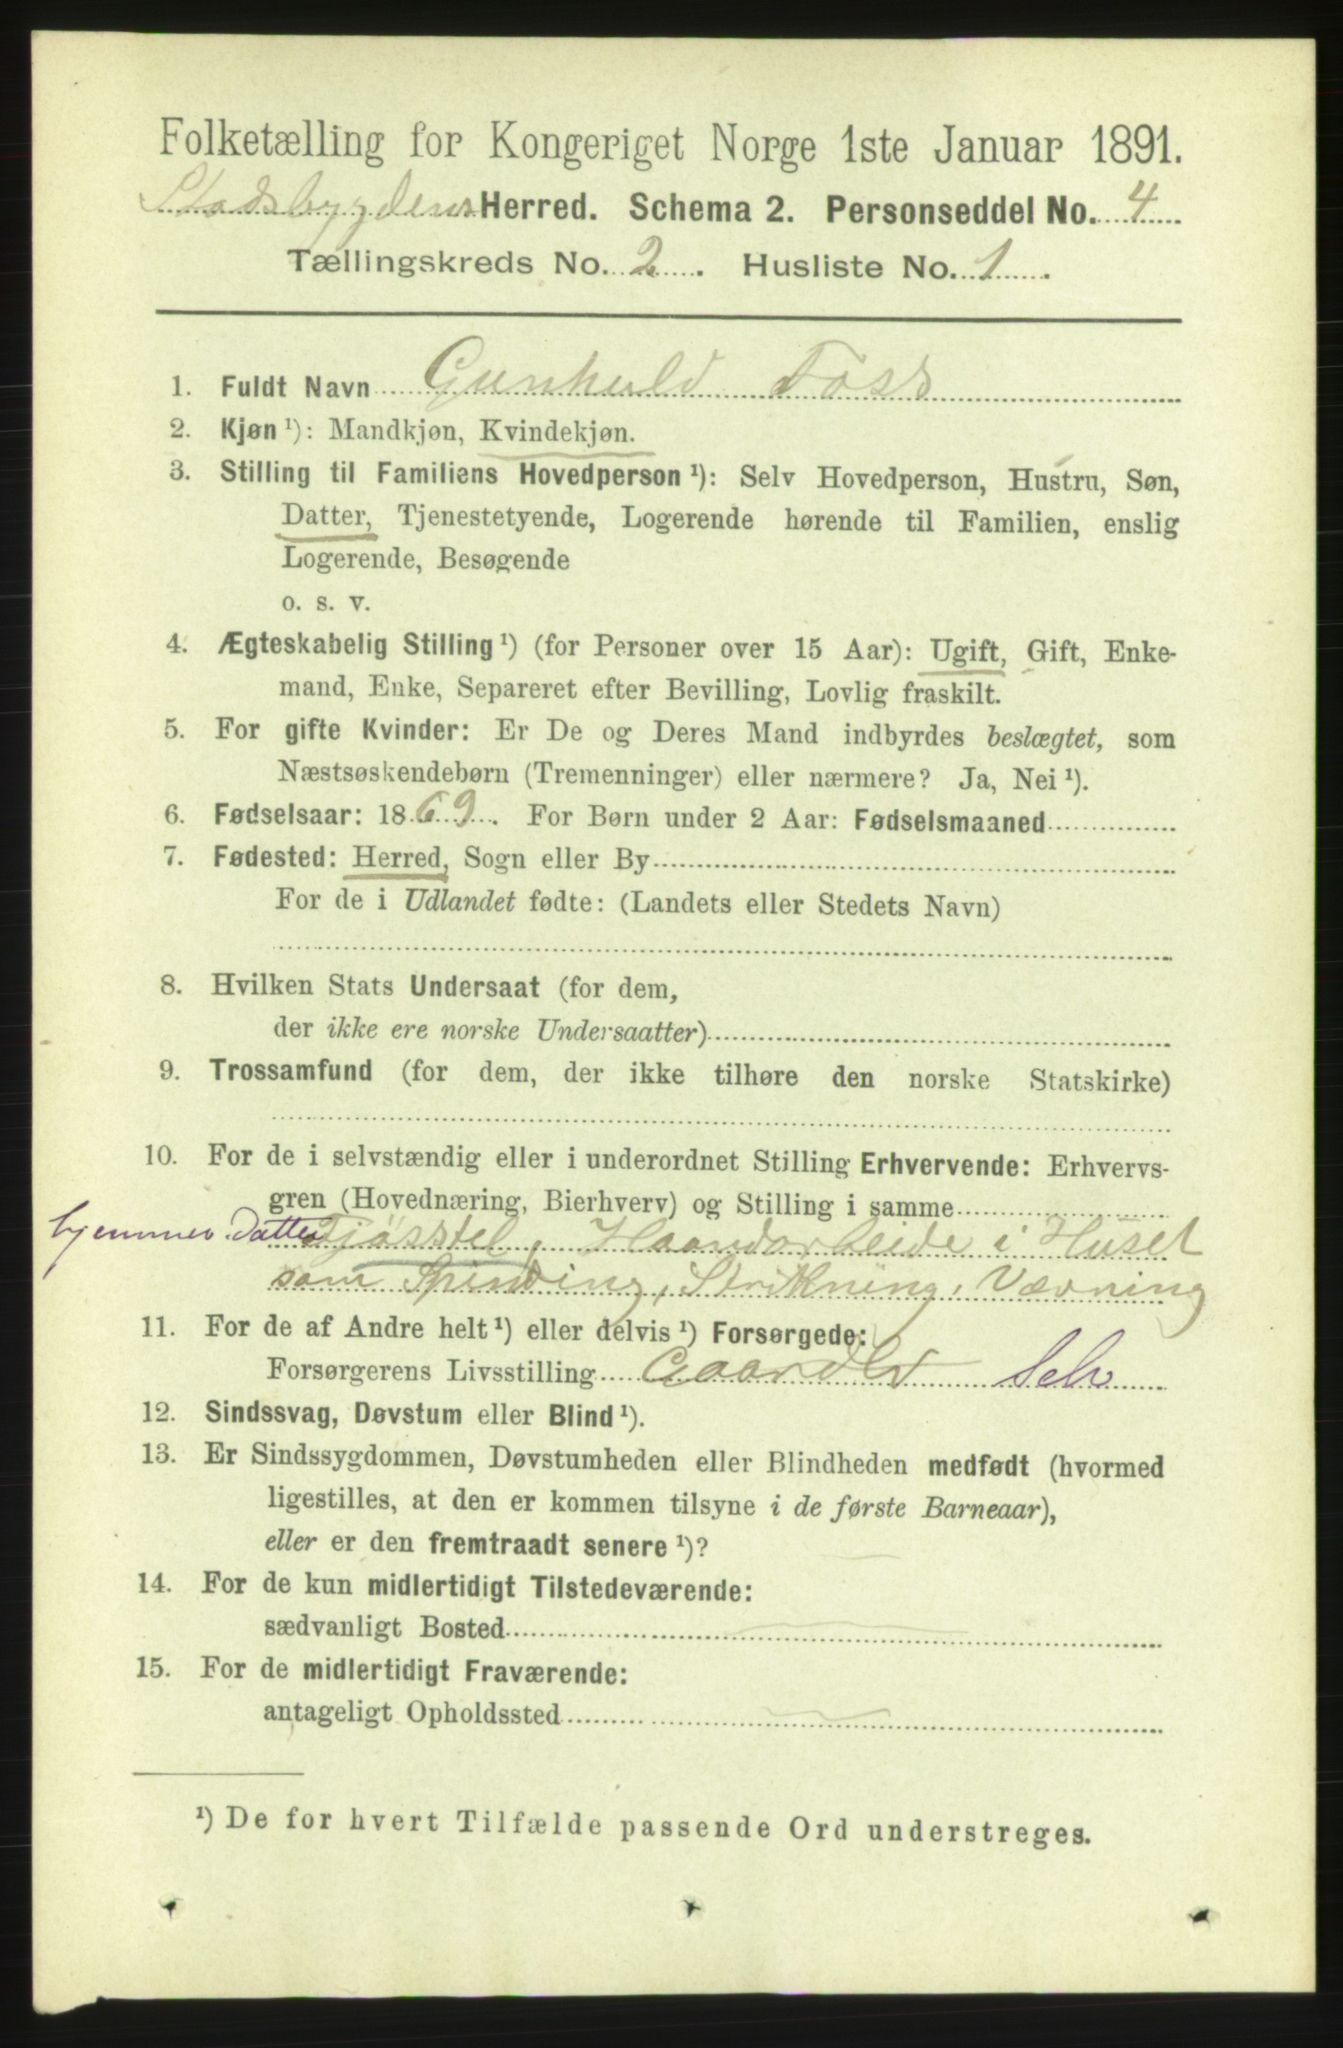 Folketælling for Kongeriget Norge 1ste Januar 1891.
Stadsbygdens Herred. Schema 2. Personseddel No. 4
Tællingskreds No. 2. Husliste No. 1.
1. Fuldt Navn Gunhild Foss
2. Kjøn ¹): Mandkjøn, Kvindekjøn.
3. Stilling til Familiens Hovedperson ¹): Selv Hovedperson, Hustru, Søn,
Datter, Tjenestetyende, Logerende hørende til Familien, enslig
Logerende, Besøgende
o. s. v.
4. Ægteskabelig Stilling ¹) (for Personer over 15 Aar): Ugift, Gift, Enke-
mand, Enke, Separeret efter Bevilling, Lovlig fraskilt.
5. For gifte Kvinder: Er De og Deres Mand indbyrdes beslægtet, som
Næstsøskendebørn (Tremenninger) eller nærmere? Ja, Nei ¹).
6. Fødselsaar: 1869. For Børn under 2 Aar: Fødselsmaaned
7. Fødested: Herred, Sogn eller By
For de i Udlandet fødte: (Landets eller Stedets Navn)
8. Hvilken Stats Undersaat (for dem,
der ikke ere norske Undersaatter)
9. Trossamfund (for dem, der ikke tilhøre den norske Statskirke)
10. For de i selvstændig eller i underordnet Stilling Erhvervende: Erhvervs-
gren (Hovednæring, Bierhverv) og Stilling i samme
hjemmev. Datter Fjøsstel, Haandarbeide i Huset
som Spinding, Strikning, Vævning
11. For de af Andre helt ¹) eller delvis ¹) Forsørgede:
Forsørgerens Livsstilling Selv
12. Sindssvag, Døvstum eller Blind ¹).
13. Er Sindssygdommen, Døvstumheden eller Blindheden medfødt (hvormed
ligestilles, at den er kommen tilsyne i de første Barneaar),
eller er den fremtraadt senere ¹)?
14. For de kun midlertidigt Tilstedeværende:
sædvanligt Bosted
15. For de midlertidigt Fraværende:
antageligt Opholdssted
¹) De for hvert Tilfælde passende Ord understreges.